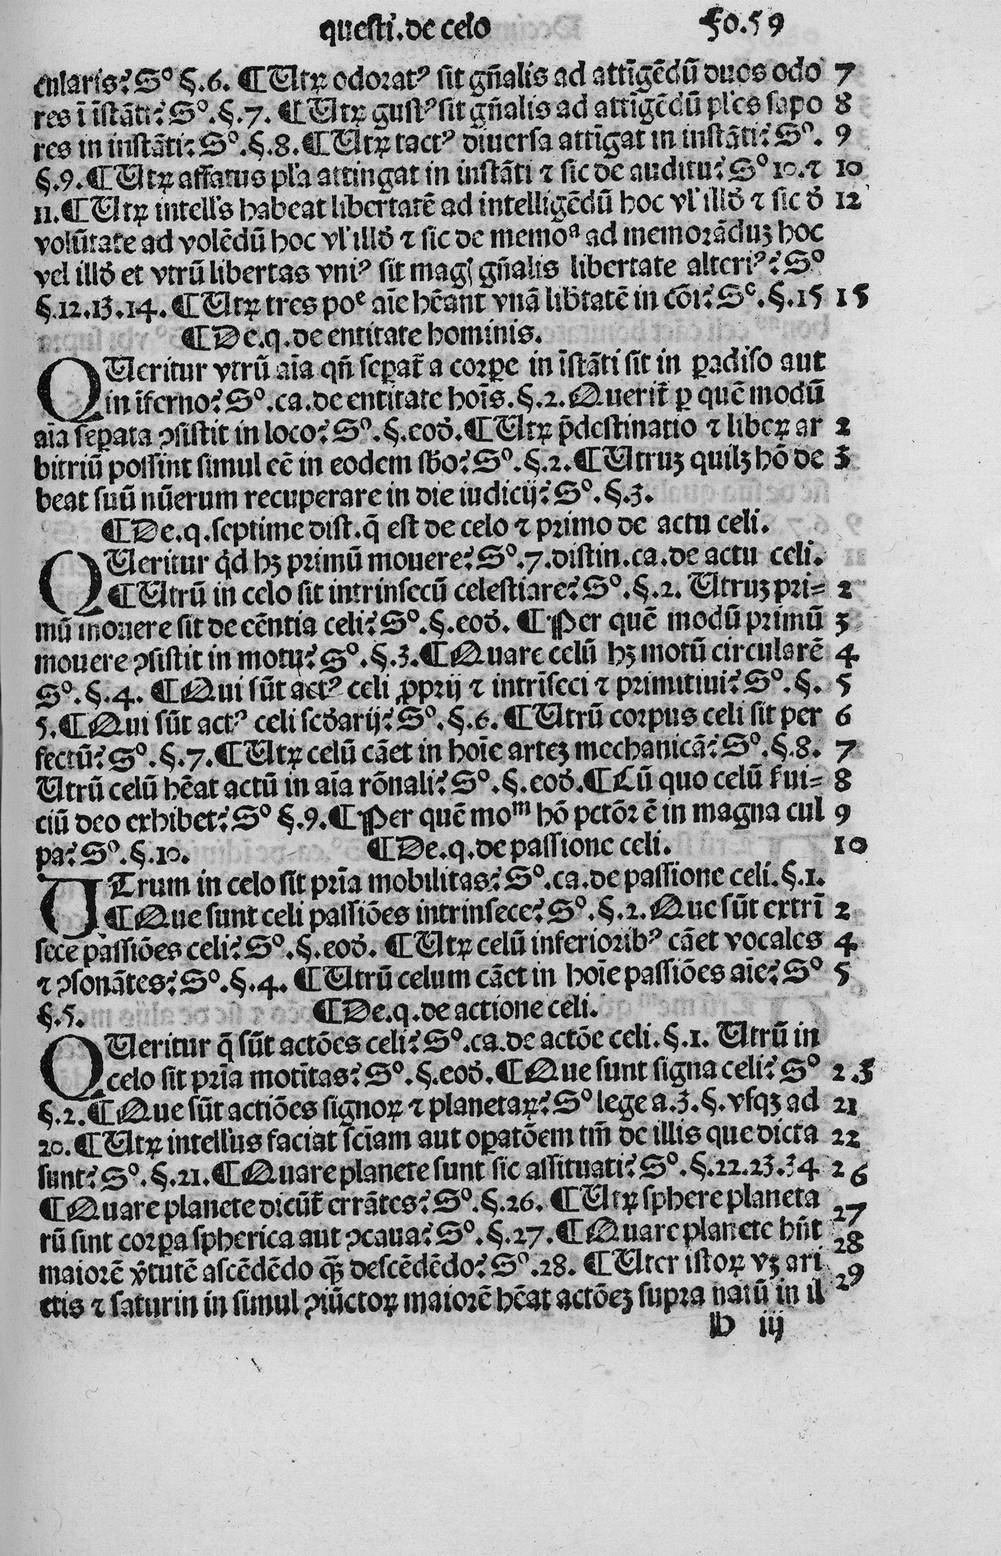 questi᷑. de celo	Fo.59
cularis: Sº §.6. ¶ Utꝝ odorat⁹ sit gñalis ad attīgēdū duos odo 7
res ī īstāti: Sº.§.7. ¶ Utꝝ gust⁹ sit gñalis ad attīgēdū pl'es sapo 8
res in instāti: Sº.§.8. ¶ Utꝝ tact⁹ diuersa attīgat in instāti: Sº. 9
§.9. ¶ Utꝝ affatus pl'a attingat in instāti ⁊ sic de auditu: Sº 10.⁊ 10
11. ¶ Utꝝ intell's habeat libertatē ad intelligēdū hoc vl' illđ ⁊ sic đ 12
volūtate ad volēdū hoc vl' illđ ⁊ sic de memoª ad memorāduꝫ hoc
vel illđ et vtrū libertas vni⁹ sit mag̃ gñalis libertate alteri⁹: Sº
§.12.13.14. ¶ Utꝝ tres poᵉ aīe hēant vnā lib̃tatē in cōi: Sᵉ.§.15 15
¶ De.q. de entitate hominis.
QUeritur vtrū aīa qñ sep̱at̃ a corpe in īstāti sit in p̱adiso aut
in īferno: Sº.ca. de entitate hoīs.§.2. Querit̃ p̱ quē modū
aīa sep̱ata ꝯsistit in loco: Sº.§.eođ. ¶ Utꝝ p̄destinatio ⁊ libeꝝ ar 2
bitriū possint simul eē in eodem sb̄o: Sº.§.2. ¶ Utruꝫ quilꝫ hō de 3
beat suū nūerum recuperare in die iudicij: Sº.§.3.
¶ De.q. septime dist. q̄ est de celo ⁊ primo de actu celi.
QUeritur qđ hꝫ primū mouere: Sº.7.distin.ca.de actu celi.
¶ Utrū in celo sit intrinsecū celestiare: Sº.§.2. Utruꝫ pri- 2
mū mouere sit de eēntia celi: Sº.§.eođ. ¶ Per quē modū primū 3
mouere ꝯsistit in motu: Sº.§.3. ¶ Quare celū hꝫ motū circularē 4
Sº.§.4. ¶ Qui sūt act⁹ celi ꝓprij ⁊ intrīseci ⁊ primitiui: Sº.§. 5
5. ¶ Qui sūt act⁹ celi scđarij: Sº.§.6. ¶ Utrū corpus celi sit per 6
fectū: Sº.§.7. ¶ Utꝝ celū cāet in hoīe arteꝫ mechanicā: Sº.§.8. 7
Utrū celū hēat actū in aīa rōnali: Sº.§.eođ. ¶ Cū quo celū s̃ui- 8
ciū deo exhibet: Sº §.9. ¶ Per quē moᵐ hō pctōr ē in magna cul 9
pa: Sº.§.10.	¶ De.q. de passione celi. 10
UTrum in celo sit prīa mobilitas: Sº.ca.de passione celi.§.1.
¶ Que sunt celi passiōes intrinsece: Sº.§.2. Que sūt extrī 2
sece passiōes celi: Sº.§.eođ. ¶ Utꝝ celū inferiorib⁹ cāet vocales 4
⁊ ꝯsonātes: Sº.§.4. ¶ Utrū celum cāet in hoīe passiōes aīe: Sº 5
§.5.	¶ De.q. de actione celi.
QUeritur q̄ sūt actōes celi: Sº.ca.de actōe celi.§.1. Utrū in
celo sit prīa motītas: Sº.§.eođ. ¶ Que sunt signa celi: Sº 2.3
§.2. ¶ Que sūt actiōes signoꝝ ⁊ planetaꝝ: Sº lege a.3.§.vsqꝫ ad 21
20. ¶ Utꝝ intell'us faciat sciam aut oꝑatōem tm̄ de illis que dicta 22
sunt: Sº.§.21. ¶ Quare planete sunt sic assituati: Sº.§.22.23.34 26
¶ Quare planete dicūt̃ errātes: Sº.§.26. ¶ Utꝝ sphere planeta 27
rū sint corp̱a spherica aut ꝯcaua: Sº.§.27. ¶ Quare planete hñt 28
maiorē v̄tutē ascēdēdo q̄ꝫ descēdēdo: Sº.28. ¶ Uter istoꝝ vꝫ ari 29
etis ⁊ saturni in simul ꝯiūctoꝝ maiorē hēat actōeꝫ supra natū in il
h iij